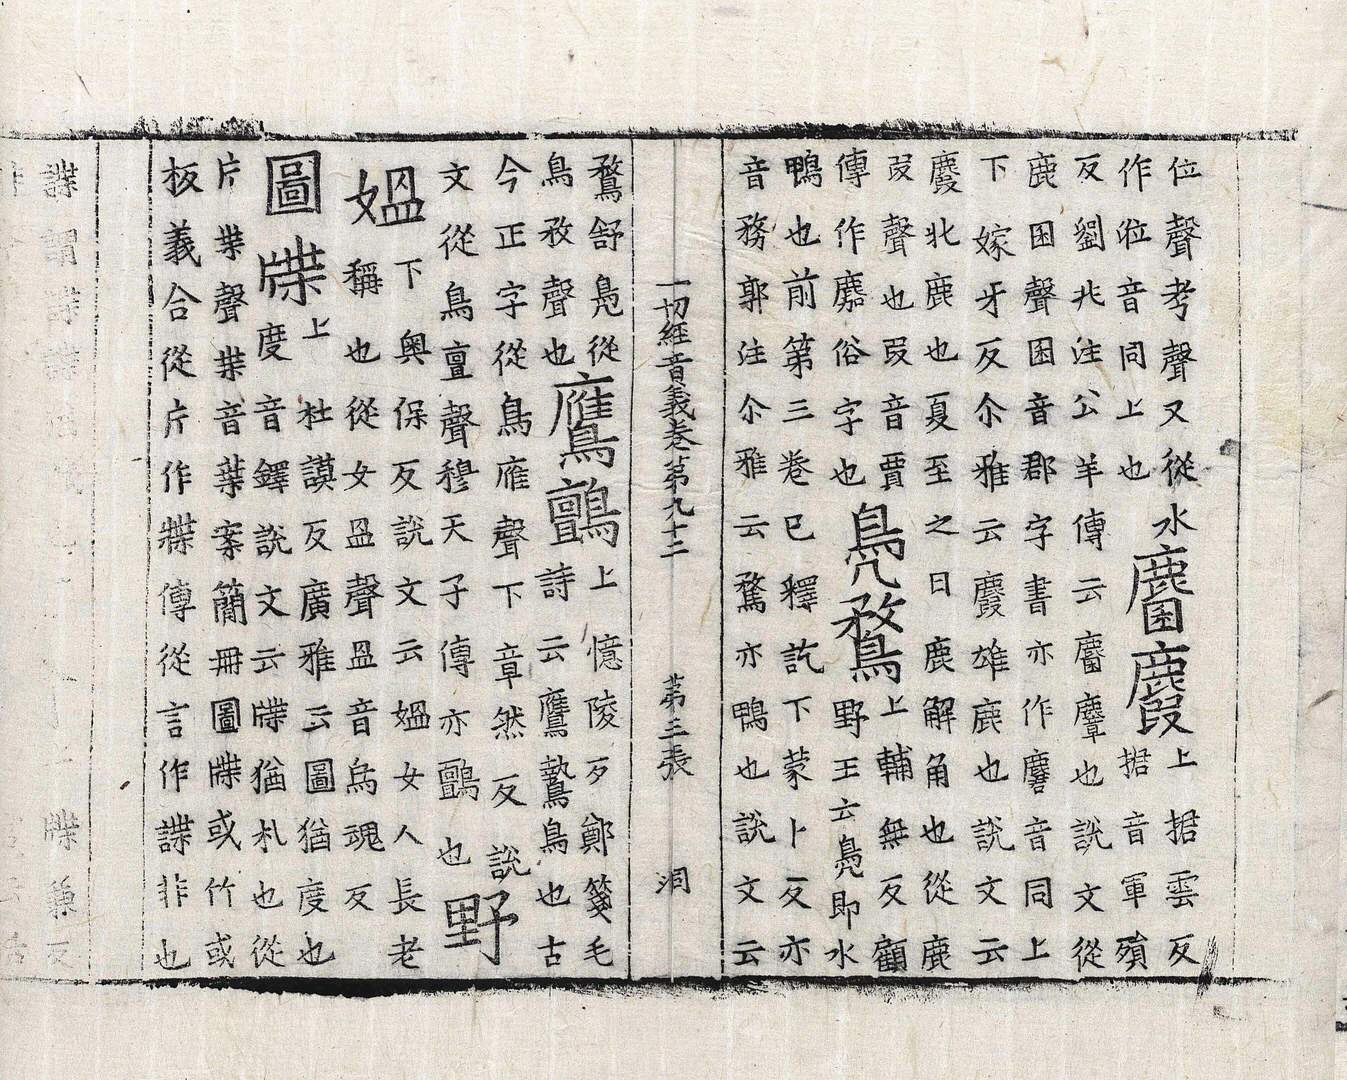 位聲考聲又從水
作涖音同上也
麕麚
上据雲反
据音軍殞
反劉兆注公羊傳云麕麞也説文從
鹿囷聲囷音郡字書亦作麏音同上
下嫁牙反尒雅云麚雄鹿也説文云
麚北鹿也夏至之日鹿解角也從鹿
叚聲也叚音賈
傳作俗字也
鳧鶩
上輔無反顧
野王云鳧即水
鴨也前第三卷已釋訖下蒙卜反亦
音務郭注尒雅云鶩亦鴨也説文云
一切經音義卷第九十二 第三張 洞
鶩舒鳧從
鳥敄聲也
鷹鸇
上憶陵反鄭箋毛
詩云鷹鷙鳥也古
今正字從鳥䧹聲下章然反説
文從鳥亶聲穆天子傳亦鸇也
野
媼
下奥保反説文云媼女人長老
稱也從女𥁕聲𥁕音烏魂反
圖牒
上杜謨反廣雅云圖猶度也
度音鐸説文云牒猶札也從
片枼聲枼音葉案簡冊圖牒或竹或
板義合從片作牒傳從言作諜非也